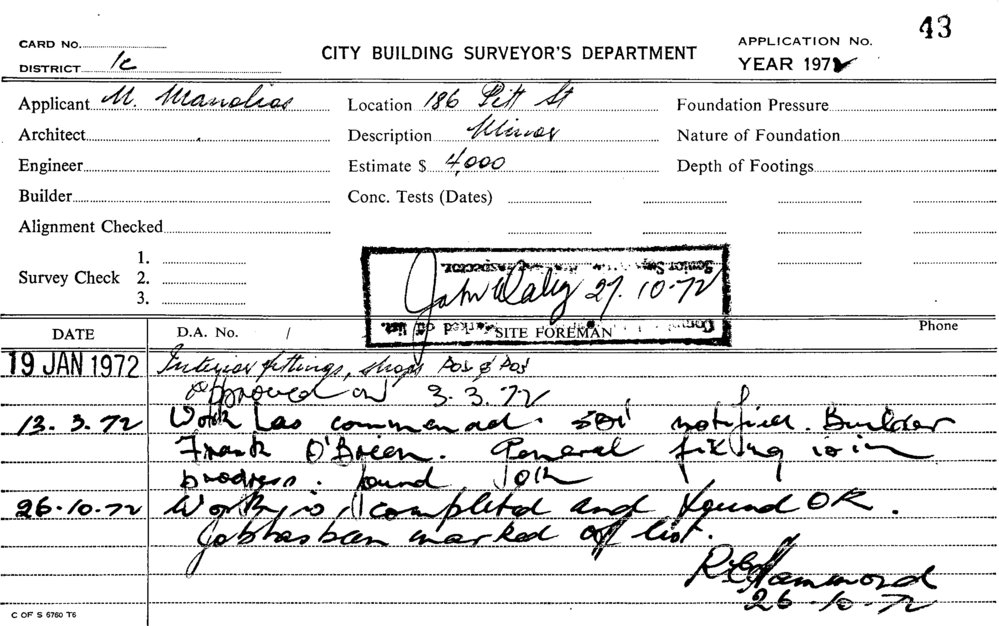 43
CARD No.
CITY BUILDING SURVEYOR'S DEPARTMENT
APPLICATION No.
DISTRICT 1c
YEAR 1972
Applicant M. Manolias
Location 186 Pitt St
Foundation Pressure
Architect
Description Minor
Nature of Foundation
Engineer
Estimate $ 4,000
Depth of Footings
Builder
Conc. Tests (Dates)
Alignment Checked
Survey Check
1.
2.
3.
John Daly 27.10.72
DATE
D.A. No. /
SITE FOREMAN
Phone
19 JAN 1972 Interior fittings, shops
approved on 3.3.72
13.3.72 Work has commenced. notified. Builder
Frank O'Brien. General fixing is in
progress. found OK
26.10.72 Work is completed and found OK.
Job has been marked off list.
R Hammond
26.10.72
C OF S 6760 T6